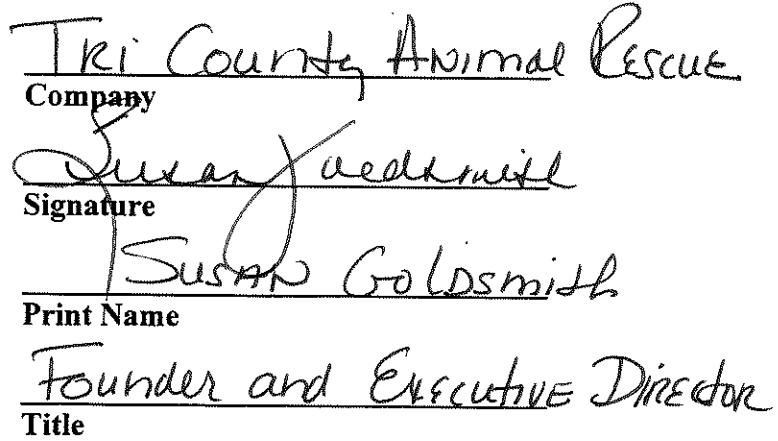 Tri County Animal Rescue
Company
Susan Goldsmith
Signature
Susan Goldsmith
Print Name
Founder and Executive Director
Title